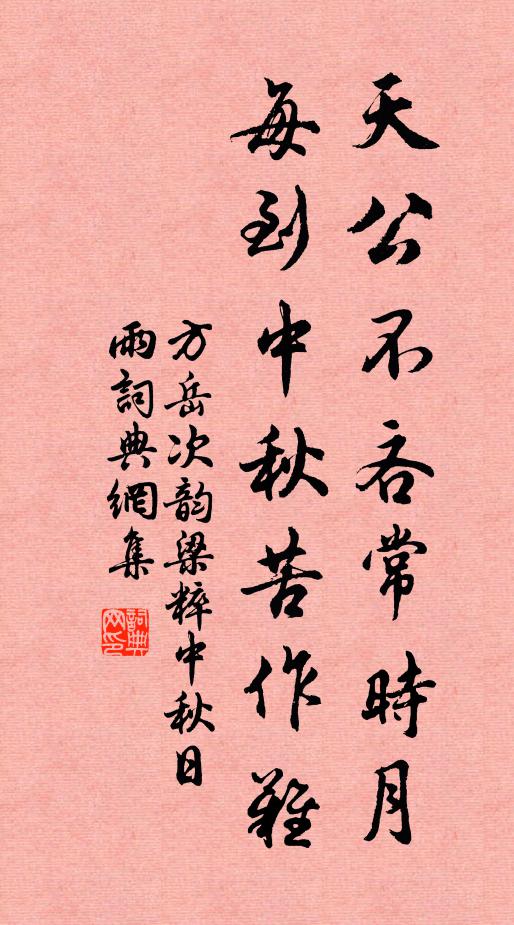 天公不吝常時月
每到中秋苦作難
方岳次韵梁粹中秋日
雨詞典網集
詞典网印